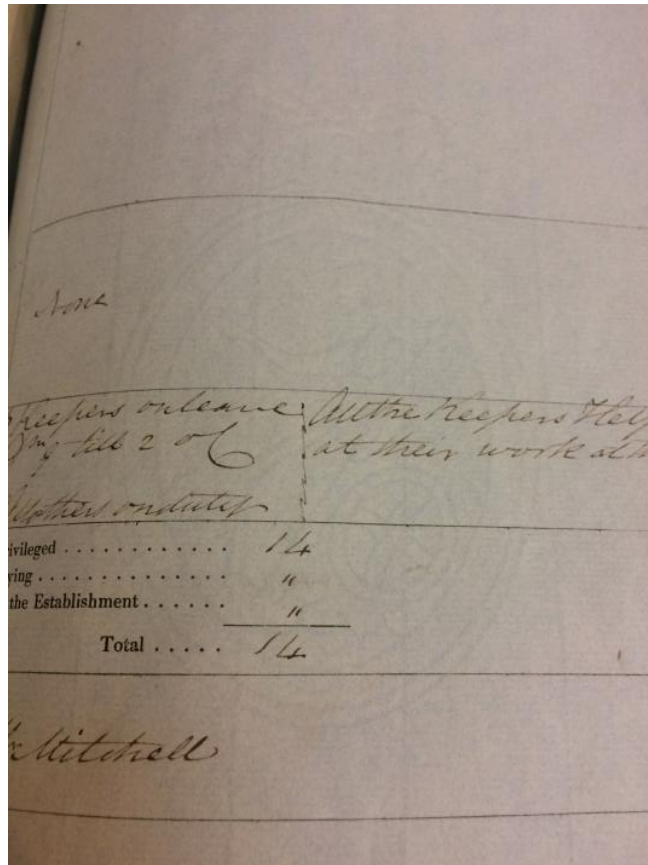 None
Keepers on leave
till 2 oC
All others on duty
All the Keepers & Help
at their work at
ivileged . . . . . . . . . . . . 14
ying . . . . . . . . . . . . . . "
the Establishment . . . . . . "
Total . . . . . 14
Mitchell